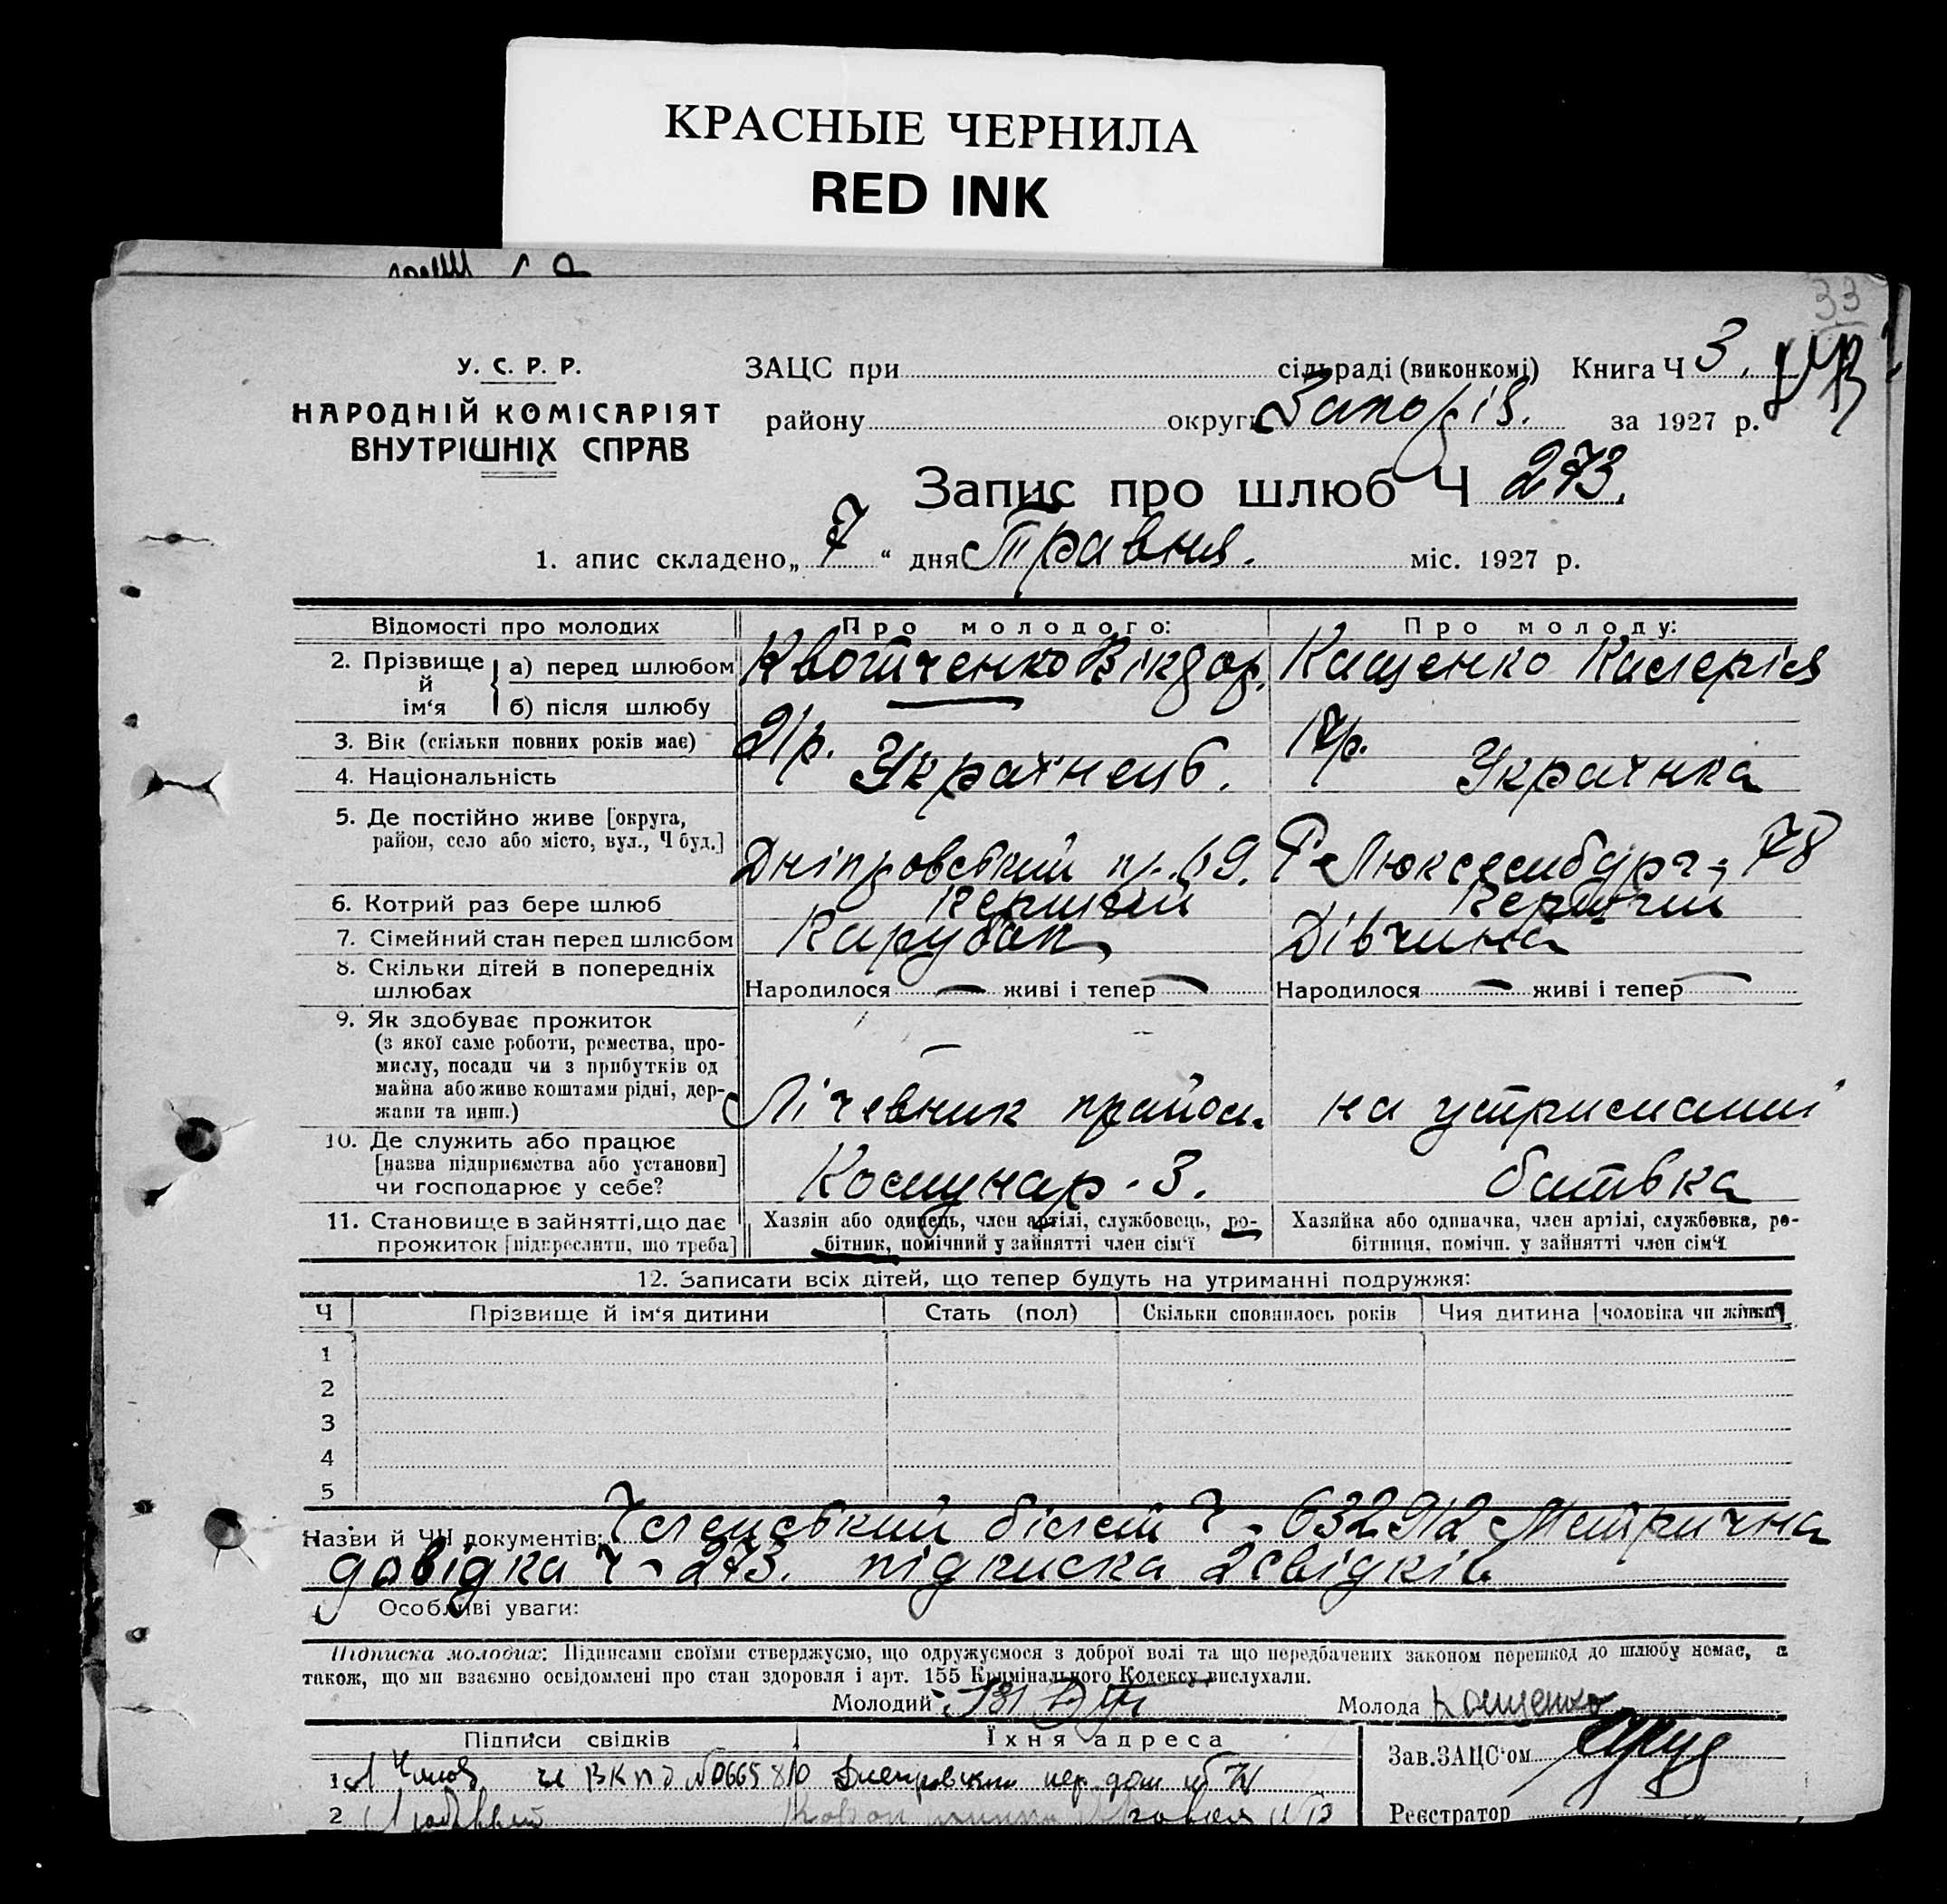 КРАСНЫЕ ЧЕРНИЛА
RED INK
33
У. С. Р. Р.
НАРОДНІЙ КОМІСАРІЯТ
ВНУТРІШНІХ СПРАВ
ЗАЦС при сільраді (виконкомі) Книга Ч 3.
району округи Запоріз. за 1927 р.
Запис про шлюб Ч 273.
1. апис складено „ 7 “ дня Травня. міс. 1927 р.
Відомості про молодих Про молодого: Про молоду:
2. Прізвище й ім‘я а) перед шлюбом Квотченко Віхдор. Кащенко Калерія
б) після шлюбу
3. Вік (скільки повних років має) 21р. 18р.
4. Національність Українець. Українка
5. Де постійно живе [округа,
район, село або місто, вул., Ч буд.] Дніпровський п. 69. Р. Люксембург 78
6. Котрий раз бере шлюб Перший Перший
7. Сімейний стан перед шлюбом Парубок Дівчина
8. Скільки дітей в попередніх
шлюбах Народилося — живі і тепер — Народилося — живі і тепер —
9. Як здобуває прожиток
(з якої саме роботи, ремества, про-
мислу, посади чи з прибутків од
майна або живе коштами рідні, дер-
жави та инш.) на утриманні
10. Де служить або працює
[назва підприємства або установи]
чи господарює у себе? Комунар - З. батька
11. Становище в зайнятті, що дає
прожиток [підкреслити, що треба]
Хазяін або одинець, член артілі, службовець, ро-
бітник, помічний у зайнятті член сім‘ї
Хазяйка або одиначка, член артілі, службовка, ро-
бітниця, помічн. у зайнятті член сім‘ї
12. Записати всіх дітей, що тепер будуть на утриманні подружжя:
Ч Прізвище й ім‘я дитини Стать (пол) Скільки сповнилось років Чия дитина [чоловіка чи жінки]
1
2
3
4
5
Назви й ЧЧ документів: Членський білет Ч - 632912 Метрична
довідка Ч - 273. підписка 2 свідків
Особливі уваги:
Підписка молодих: Підписами своїми стверджуємо, що одружуємося з доброї волі та що передбачених законом перешкод до шлюбу немає, а
також, що ми взаємно освідомлені про стан здоровля і арт. 155 Кримінального Кодексу вислухали.
Молодий Молода Кащенко
Підписи свідків Їхня адреса
Зав. ЗАЦС‘ом
1
2
Реєстратор